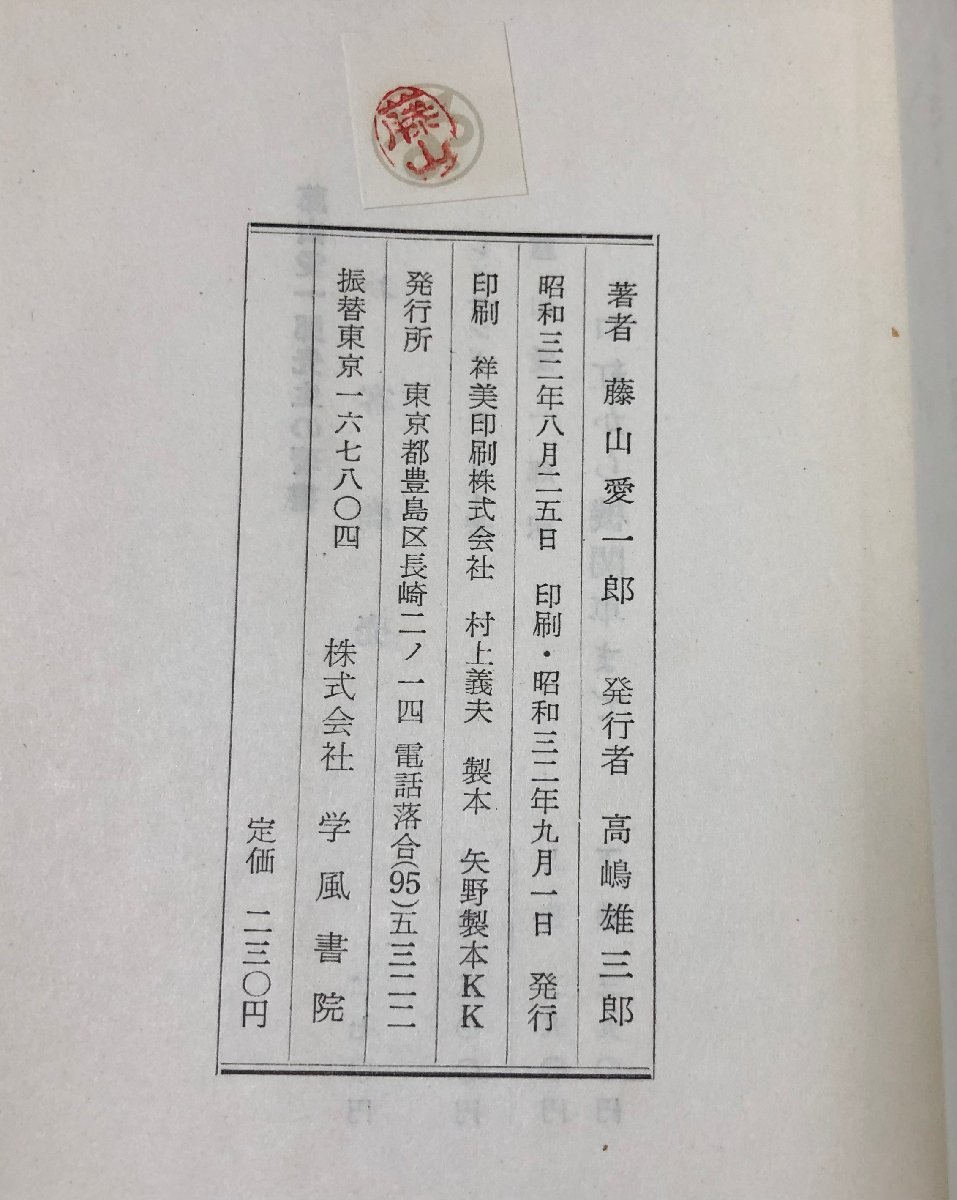 藤山
著者　藤山愛一郎　発行者　高嶋雄三郎
昭和三二年八月二五日　印刷・昭和三二年九月一日　発行
印刷　祥美印刷株式会社　村上義夫　製本　矢野製本KK
発行所　東京都豊島区長崎二ノ一四　電話落合(95)五三二二
振替東京一六七八〇四　株式会社　学風書院
定価　二三〇円